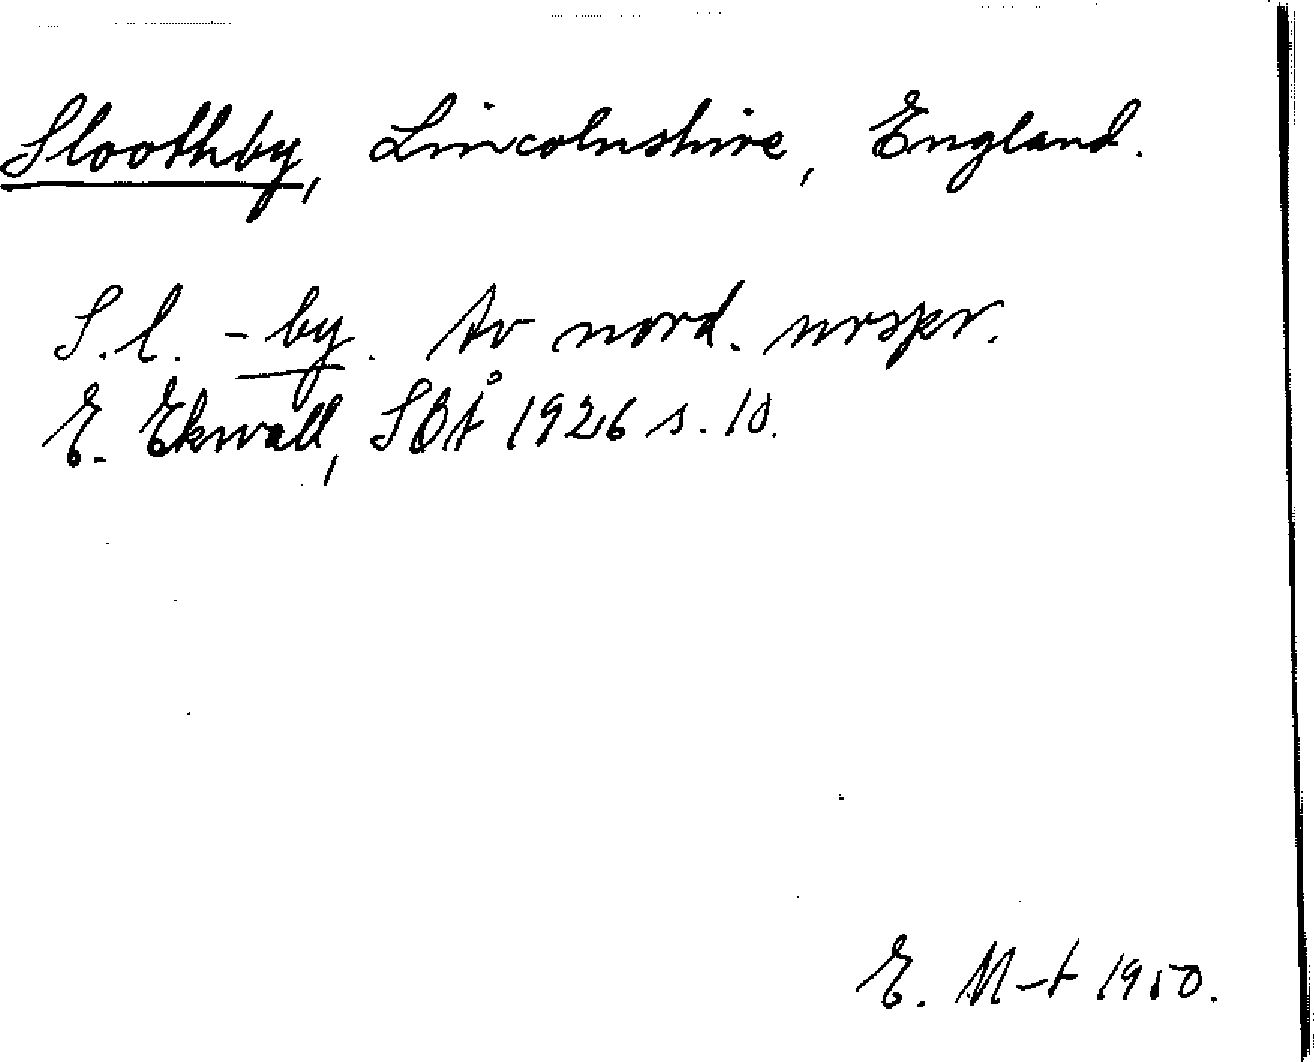 Sloothby, Lincolnshire, England.
S.l. -by. Av nord. urspr.
E. Ekwall, SOÅ 1926 s. 10.
E. M-t 1950.